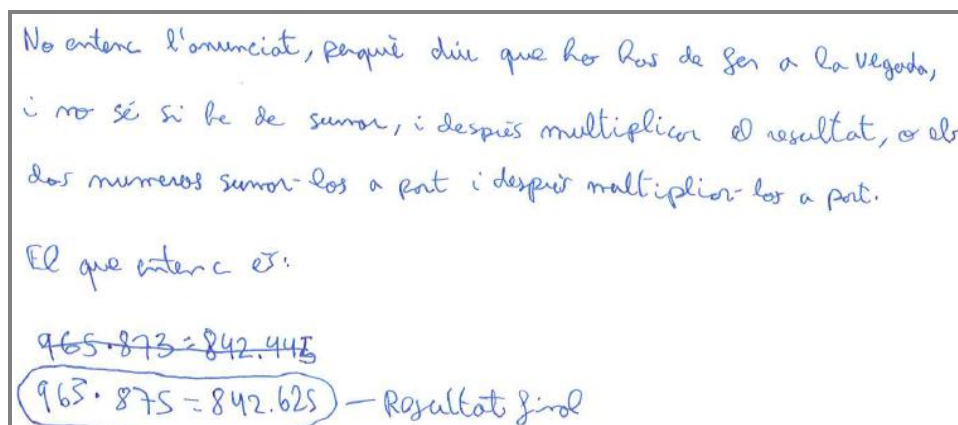 No entenc l'anunciat, perquè diu que ho has de fer a la vegada,
i no sé si he de sumar, i després multiplicar el resultat, o els
dos numeros sumar-los a part i després multiplicar-los a part.
El que entenc és:
965·873=842.445
963·875=842.625 — Resultat final